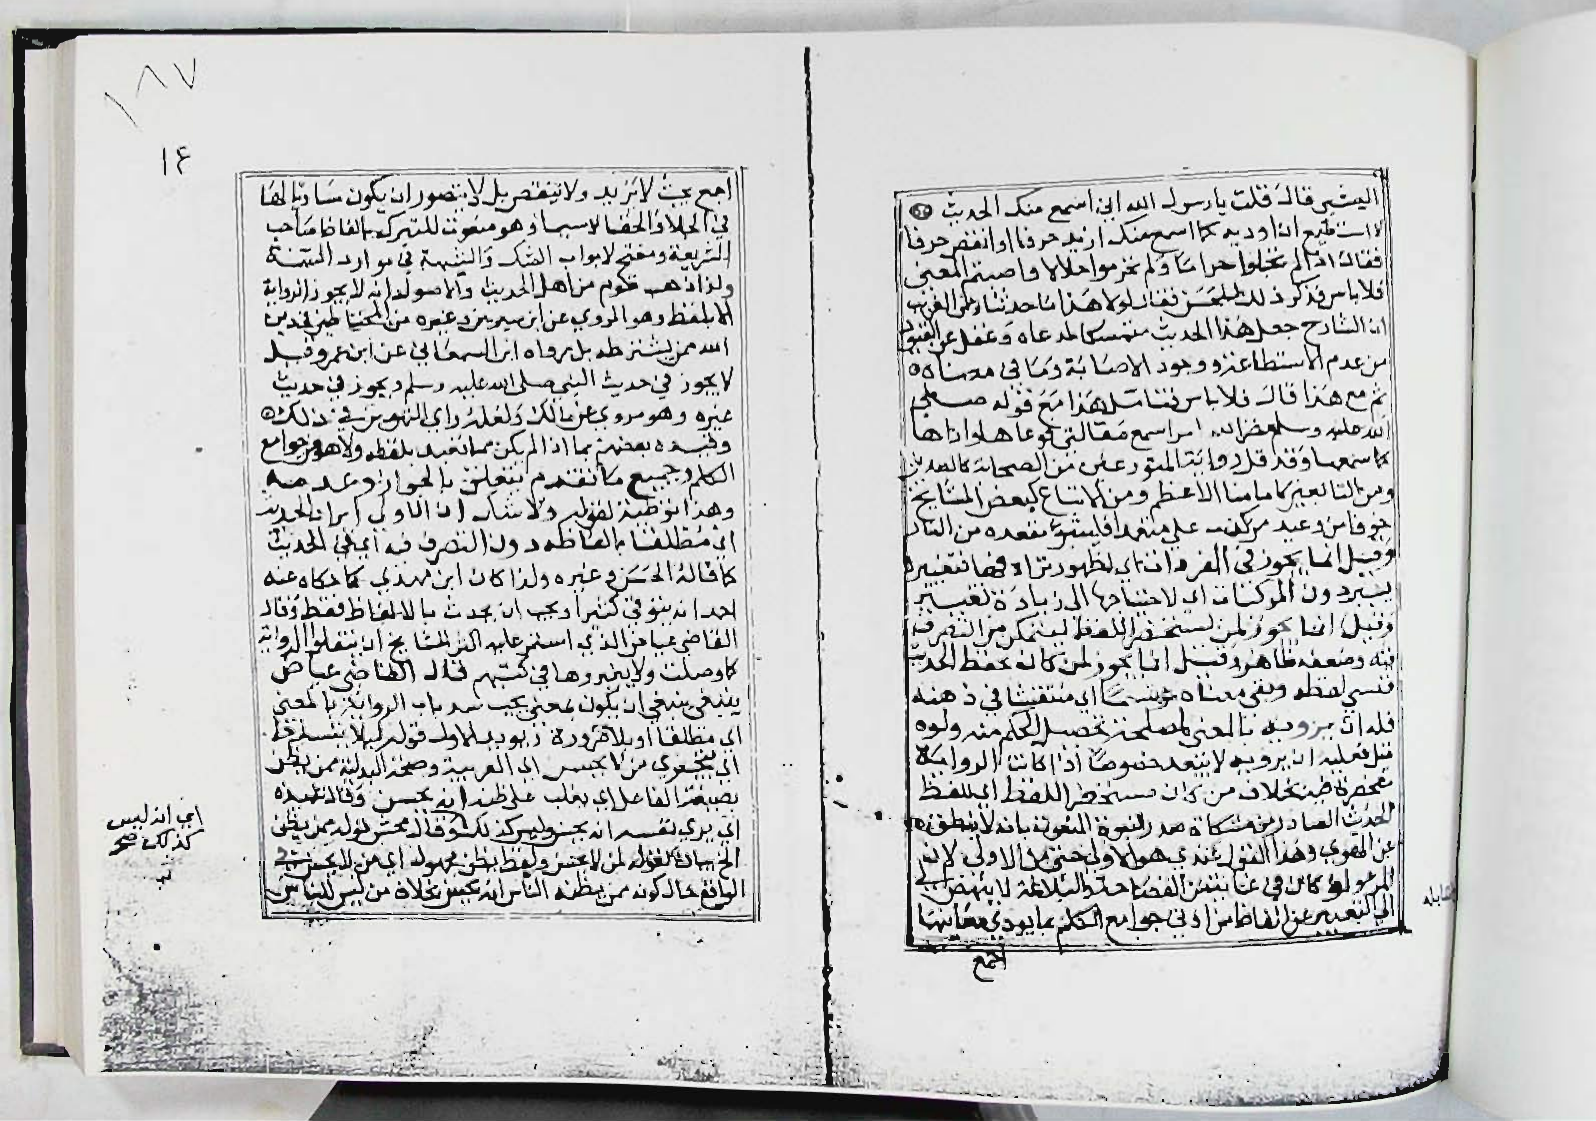 الليثي قال قلت يا رسول الله اني اسمع منك الحديث
لا استطيع ان اوديه كما اسمع منك ازيد حرفا او انقص حرفا
فقال اذا لم تحلوا حراما ولم تحرموا حلالا واصبتم المعنى
فلا باس فذكر ذلك للحسن فقال لولا هذا ما حدثنا ومن الغريب
ان الشارح جعل هذا الحديث متمسكا لمدعاه وغفل عن القيود
من عدم الاستطاعة ووجود الاصابة وما في معناه
ثم مع هذا قال فلا باس فتأمل هذا مع قوله صلى
الله عليه وسلم نضر الله امرا سمع مقالتي فوعاها واداها
كما سمعها وقد قل رواية المتورعين من الصحابة كالصديق
ومن التابعين كامامنا الاعظم ومن الاتباع كبعض المشايخ
خوفا من وعيد من كذب علي متعمدا فليتبوء مقعده من النار
وقيل انما يجوز في المفردات اي لظهور ترادفها بتغيير
يسير دون المركبات اي لاحتياجها الى زيادة تغيير
وقيل انما يجوز لمن يستحضر اللفظ ليتمكن من التصرف
فيه وضعفه ظاهر وقيل انما يجوز لمن كان يحفظ الحديث
فنسي لفظه وبقي معناه مرتسما اي منتقشا في ذهنه
فله ان يرويه بالمعنى لمصلحة تحصيل الحكم منه ولوه
قيل فعليه ان يرويه لا يبعد خصوصا اذا كانت الرواية
منحصرة فيه بخلاف من كان مستحضر اللفظ اي للفظ
الحديث الصادر من مشكاة صدر النبوة المنعوت بانه لا ينطق
عن الهوى وهذا القول عندي هو الاولى حتى من الاولى لان
المرء ولو كان في غاية من الفصاحة والبلاغة لا ينهض
الى التعبير عن الفاظ من اوتي جوامع الكلم بما يودي معانيها
اجمع
١٨٧
١٤
اجمع بحيث لا يزيد ولا ينقص بل لا يتصور ان يكون مساويا لها
في الجلاء والخفا لا سيما وهو مفوت للتبرك بالفاظ صاحب
الشريعة ومفتح لابواب الشك والشبهة في موارد السنة
ولذا ذهب قوم من اهل الحديث والاصول انه لا يجوز الرواية
الا بلفظه وهو المروي عن ابن سيرين وغيره من المحتاطين في دين
الله ممن يشترطه بل رواه ابن السمعاني عن ابن عمر وقيل
لا يجوز في حديث النبي صلى الله عليه وسلم ويجوز في حديث
غيره وهو مروي عن مالك ولعله راى التهوين في ذلك
وقيده بعضهم بما اذا لم يكن مما تعبد بلفظه ولا هو من جوامع
الكلم وجميع ما تقدم يتعلق بالجواز وعدمه
وهذا توطئة لقوله ولا شك ان الاولى ايراد الحديث
اي مطلقا بالفاظه دون التصرف فيه اي في الحديث
كما قاله الحسن وغيره ولذا كان ابن مهدي كما حكاه عنه
احد انه يتوقى كثيرا ويحب ان يحدث بالالفاظ فقط وقال
القاضي عياض الذي استمر عليه اكثر المشايخ ان ينقلوا الرواية
كما وصلت ولا يغيروها في كتبهم قال القاضي عياض
ينبغي ان يكون بمعنى يجب سد باب الرواية بالمعنى
اي مطلقا او بلا ضرورة ويويد الاول قوله كيلا يتسلط
اي يجتري من لا يحسن اي العربية وصحة البدلية ممن يظن
بصيغة الفاعل اي يغلب على ظنه انه يحسن وقال تلميذه
اي يرى نفسه انه يحسن وليس كذلك وقال محش قوله ممن يظن
الخ بيان لقوله لمن لا يحسن ولفظ يظن مجهول اي من لا يحسن في
الواقع حال كونه ممن يظنه الناس انه يحسن بخلاف من ليس للناس
اي انه ليس
كذلك صح